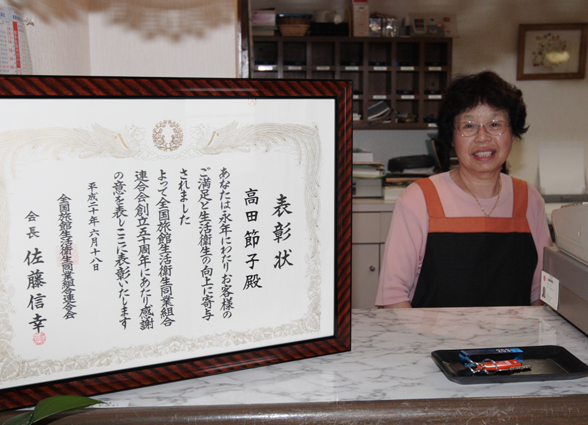 表彰状
高田節子殿
あなたは永年にわたりお客様の
ご満足と生活衛生の向上に寄与
されました
よって全国旅館生活衛生同業組合
連合会創立五十周年にあたり感謝
の意を表しここに表彰いたします
平成二十年六月十八日
全国旅館生活衛生同業組合連合会
会長 佐藤信幸